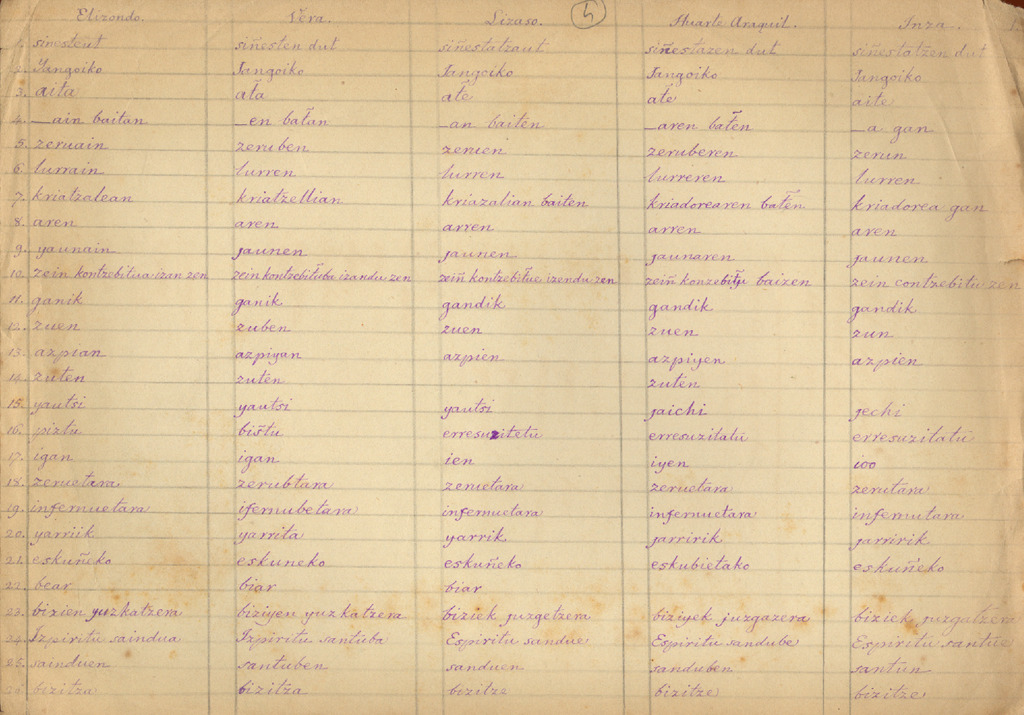 Elizondo. Vera. Lizaso. 5 Huarte Araquil. Inza.
1. sinesteut siñesten dut siñestatzaut siñestazen dut siñestatzen dut
2. Jangoiko Jangoiko Jangoiko Jangoiko Jangoiko
3. aita at̃a at̃e at̃e aite
4. _ain baitan _en bat̃an _an baiten _aren bat̃en _a gan
5. zeruain zeruben zeruen zeruberen zerun
6. lurrain lurren lurren lurreren lurren
7. kriatzalean kriatzellian kriazalian baiten kriadorearen bat̃en kriadorea gan
8. aren aren arren arren aren
9. yaunain jaunen jaunen jaunaren jaunen
10. zein kontzebitua izan zen zein kontzebit̃uba izandu zen zeiñ kontzebit̃ue izendu zen zeiñ konzebit̃u baizen zein contzebitu zen
11. ganik ganik gandik gandik gandik
12. zuen zuben zuen zuen zun
13. azpian azpiyan azpien azpiyen azpien
14. zuten zuten zuten
15. yautsi yautsi yautsi jaichi jechi
16. piztu bistu erresuzitetu erresuzitatu erresuzitatu
17. igan igan ien iyen ioo
18. zeruetara zerubtara zeruetara zeruetara zerutara
19. infernuetara ifernubetara infernuetara infernuetara infernutara
20. yarriik yarrita yarrik jarririk jarririk
21. eskuñeko eskuneko eskuñeko eskubietako eskuñeko
22. bear biar biar
23. bizien yuzkatzera biziyen yuzkatzera biziek juzgetzera biziyek juzgazera biziek juzgatzera
24. Izpiritu saindua Izpiritu santuba Espiritu sandue Espiritu sandube Espiritu santue
25. sainduen santuben sanduen sanduben santun
26. bizitza bizitza bizitze bizitze bizitze